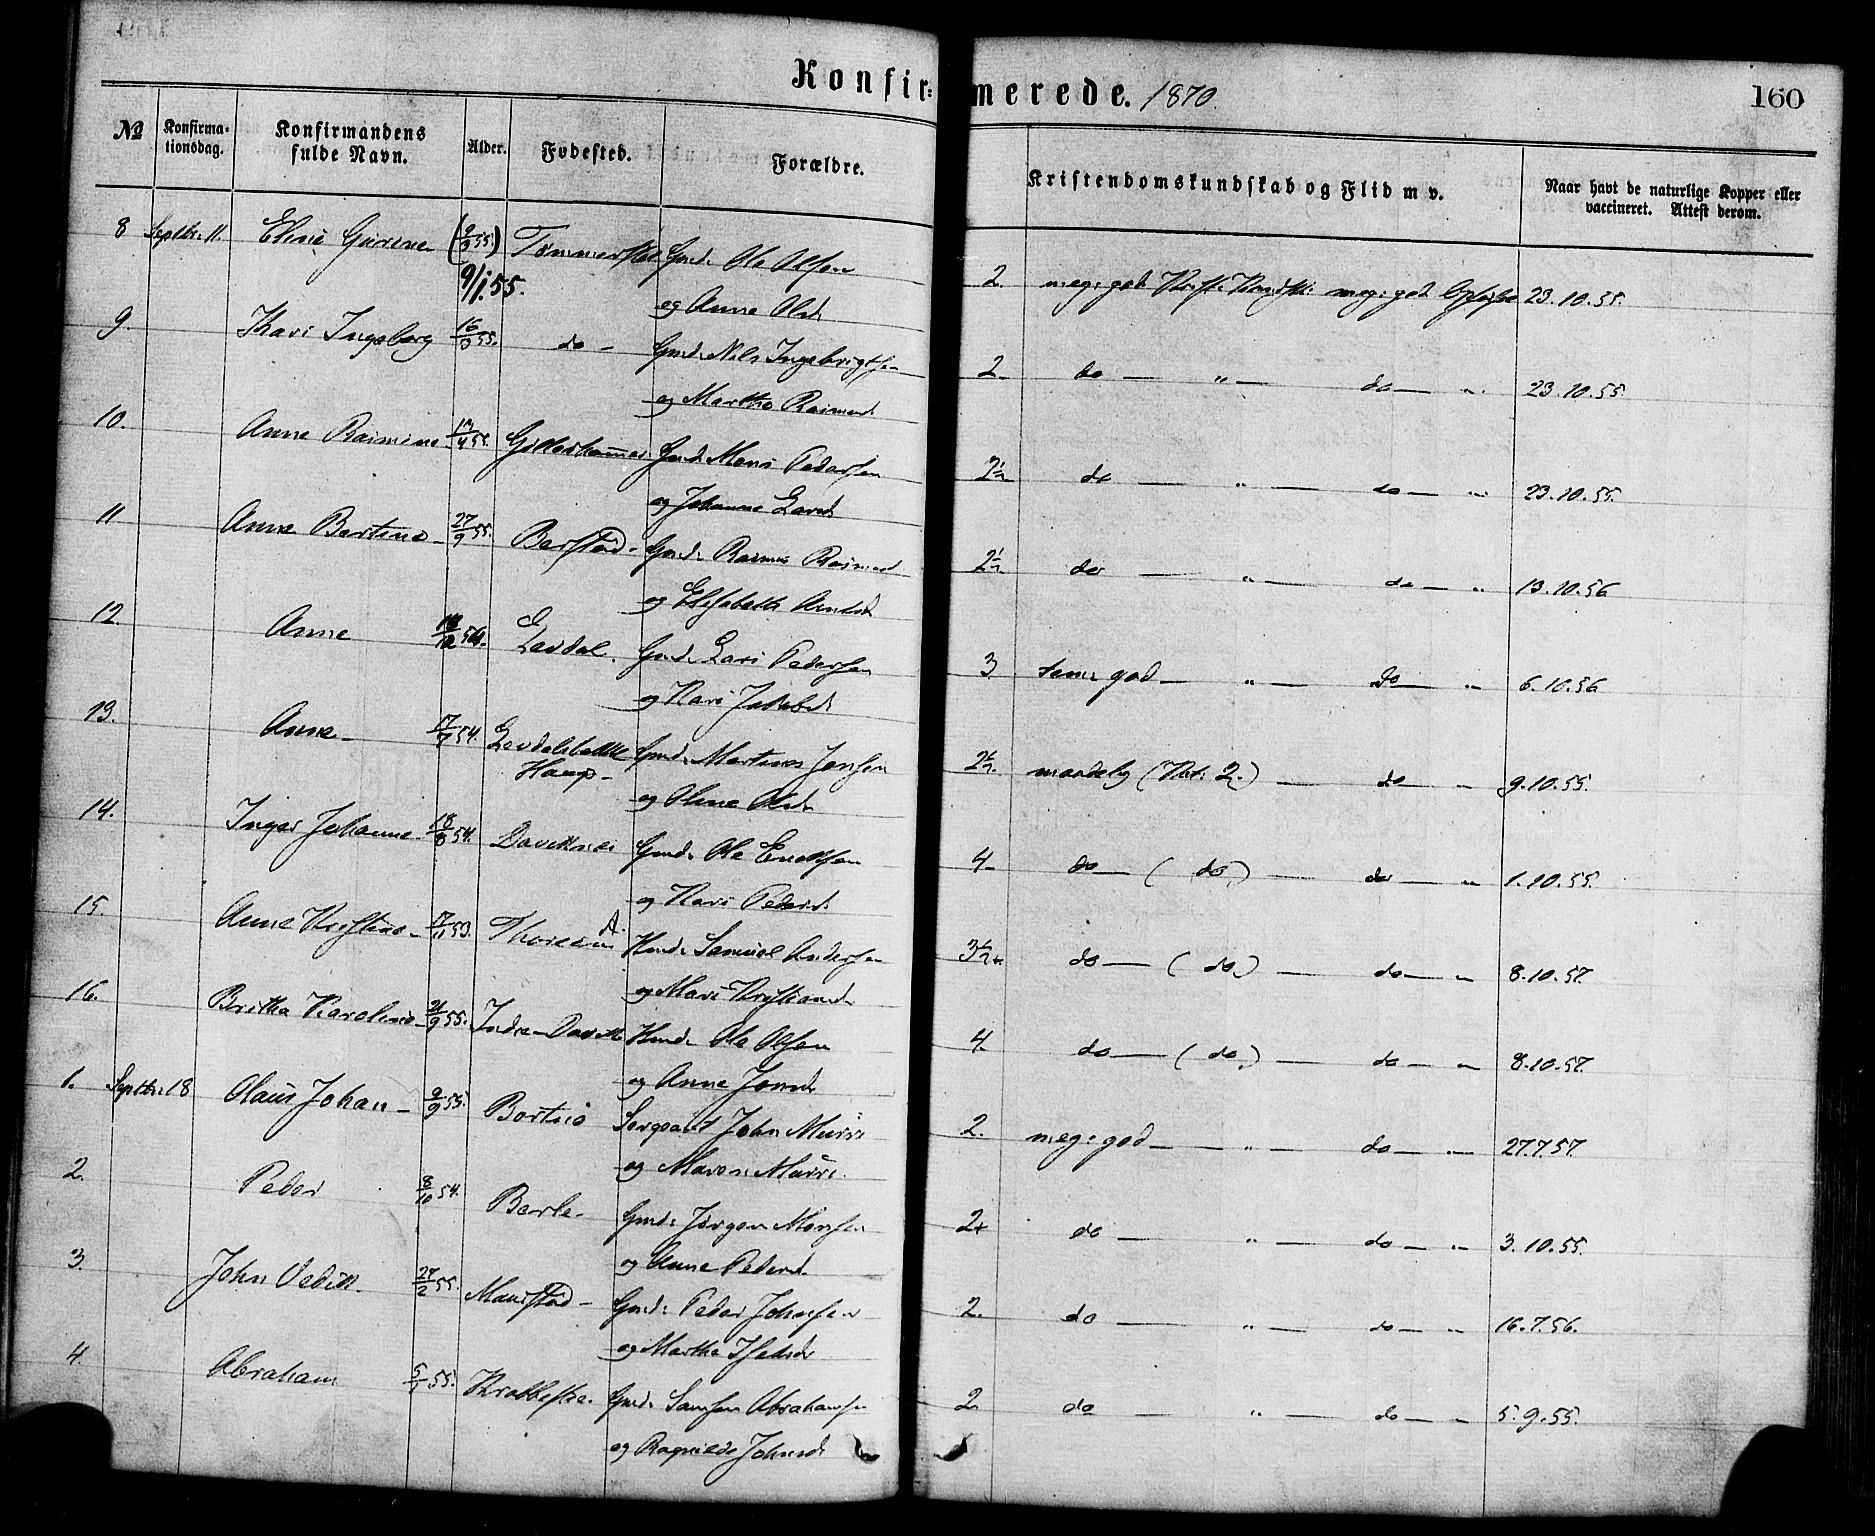 Konfir=
merede. 1870.
160
No
Konfirma-
tionsdag.
Konfirmandens
fulde Navn.
Alder.
Fødested.
Forældre.
Kristendomskundskab og Flid m v.
Naar havt de naturlige Kopper eller
vaccineret. Attest derom.
8 Septbr. 11. Eline Gurine (2/3 55.) Gmd. Ole Olsen
9/1.55. og Anne Olsd.
2. meg: god meg: god 23.10.55.
9. Kari Ingeborg 55. do - Gmd. Nils Ingebrigtsen
og Marthe Rasmusd
2. do — „ — do — „ 23.10.55
10. Anne Rasmine 55. Gmd. Mons Pedersen
og Johanne Larsd
2½ do — „ — do — „ 23.10.55.
11 Anne Bertine - 27/9 55. Barstad - Gmd. Rasmus Rasmusd
og Elisabeth
2½ do — „ — do — „ 13.10.56
12 Anne 54. Levdal. Gmd. Lars Pedersen
og Kari Jakobsd
3 tem: god — „ — do — „ 6.10.56
13. Anne - 54. Levdalsbakke Gmd. Martinus Jensen
Haugs -
og Oline Olsd.
2½. maadelig ( 2.) — do — „ 9.10.55.
14. Inger Johanne - 18/8 54. Daviknes Gmd. Ole
og Kari Pedersd
4 - do — ( do,) — do — „ 1.10.55.
15. Anne Kristine - 17/11 53. A. Hmd. Samuel Andersen
og Mari Kristiansd.
do — ( do,) — do — „ 8.10.57.
16. Britha Karoline - 55. Indre - Davik Hmd. Ole Olsen
og Anne Jonsd
4. do — ( do,) — do — „ 8.10.57.
1. Septbr. 18 Olaus Johan - 2/9 55. Bortne Sergeant John Muri
og Maren Muri.
2. meg: god — „ — do — „ 27.7.57.
2. Peder 8/10 54. Berle - Gmd: Jørgen Monsen
og Anne Pedersd.
2+ do — „ — do — „ 3.10.55.
3. John Vedik. 27/2 55. Maurstad - Gmd: Peder Johnsen
og Marthe
2. do — „ — do — „ 16.7.56.
4. Abraham 5/1 55. Krabbestre. Gmd. Samson Abrahamsen
og Ragnilde Johnsd
2. do — „ — do — „ 5.9.55.